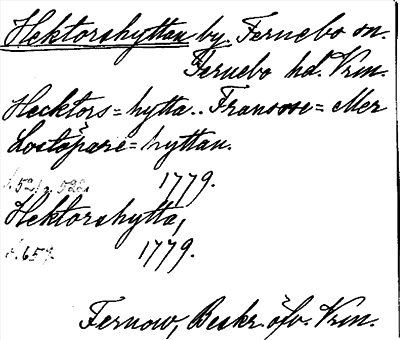 Hektorshyttan by Fernebo sn.
Fernebo hd. Vrm.
Hecktors=hytta.. Fransose= eller
Lostöpare=hyttan.
s. 521 o. 522. 1779.
Hektorshytta,
s. 657. 1779.
Fernow, Beskr. öfv. Vrm.